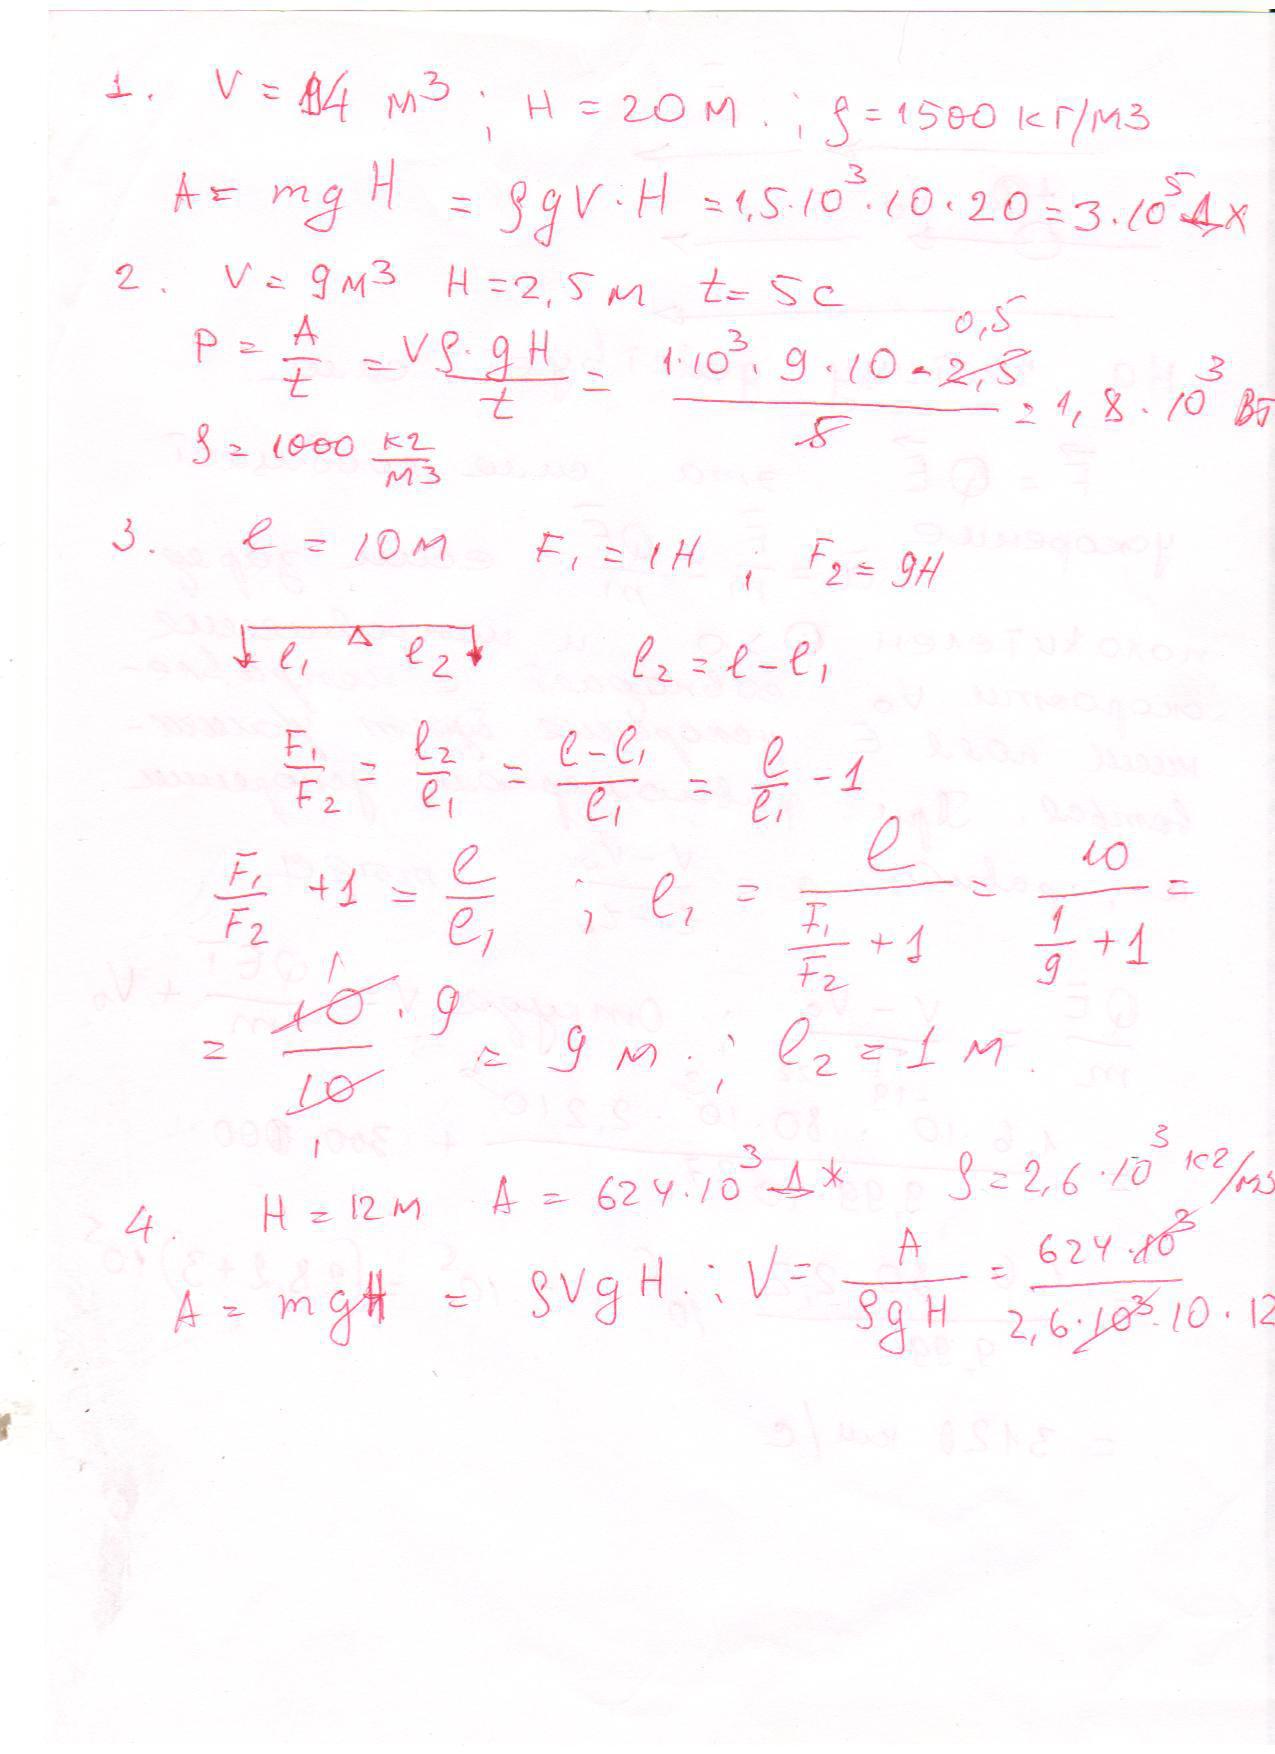 1. V = 14 м³ ; H = 20 м. ; ρ = 1500 кг/м3
A = mgH = ρgV·H = 1,5·10³·10·20 = 3·10⁵ Дж
2. V = 9м³ H = 2,5 м t = 5 с
P = A/t = Vρ·gH/t = 1·10³·9·10·2,5/5 = 1,8·10³ Вт
0,5
ρ = 1000 кг/м3
3. l = 10 м F₁ = 1Н ; F₂ = 9Н
l₁ l₂ l₂ = l – l₁
F₁/F₂ = l₂/l₁ = l – l₁/l₁ = l/l₁ – 1
F₁/F₂ + 1 = l/l₁ ; l₁ = l/(F₁/F₂ + 1) = 10/(1/9 + 1) =
= 10·9/10 = 9 м. ; l₂ = 1 м.
4. H = 12 м A = 624·10³ Дж ρ = 2,6·10³ кг/м3
A = mgH = ρVgH. ; V = A/ρgH = 624·10³/2,6·10³·10·12